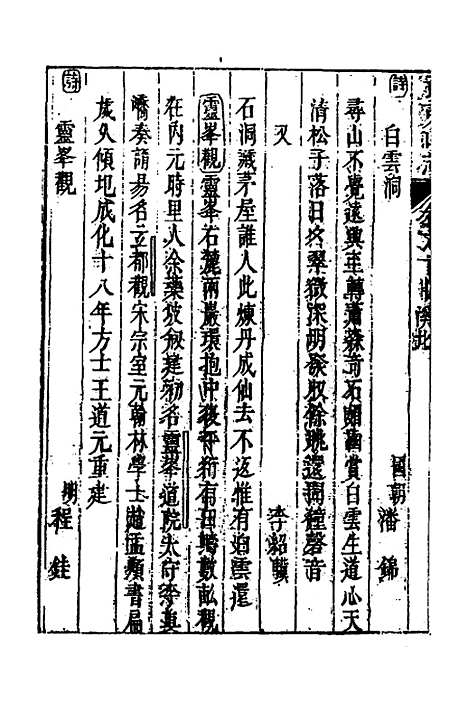 詩 白雲洞 國朝 潘錦
尋山不覺遠興至轉蕭森奇石頤幽賞白雲生道心天
清松子落日冷翠嶽深明發收餘眺遠聞鐘磬音
又 李紹驥
石洞藏茅屋誰人此煉丹成仙去不返惟有白雲還
靈峯觀靈峯右麓兩巖環抱中復平衍有田塘數畝觀
在內元時里人余藥坡叙建初名靈峯道院太守李真
嵴奏請易名立都觀宋宗室元翰林學士趙孟頫書扁
歲久傾圮成化十八年方士王道元重建
詩 靈峯觀 明 程鈺